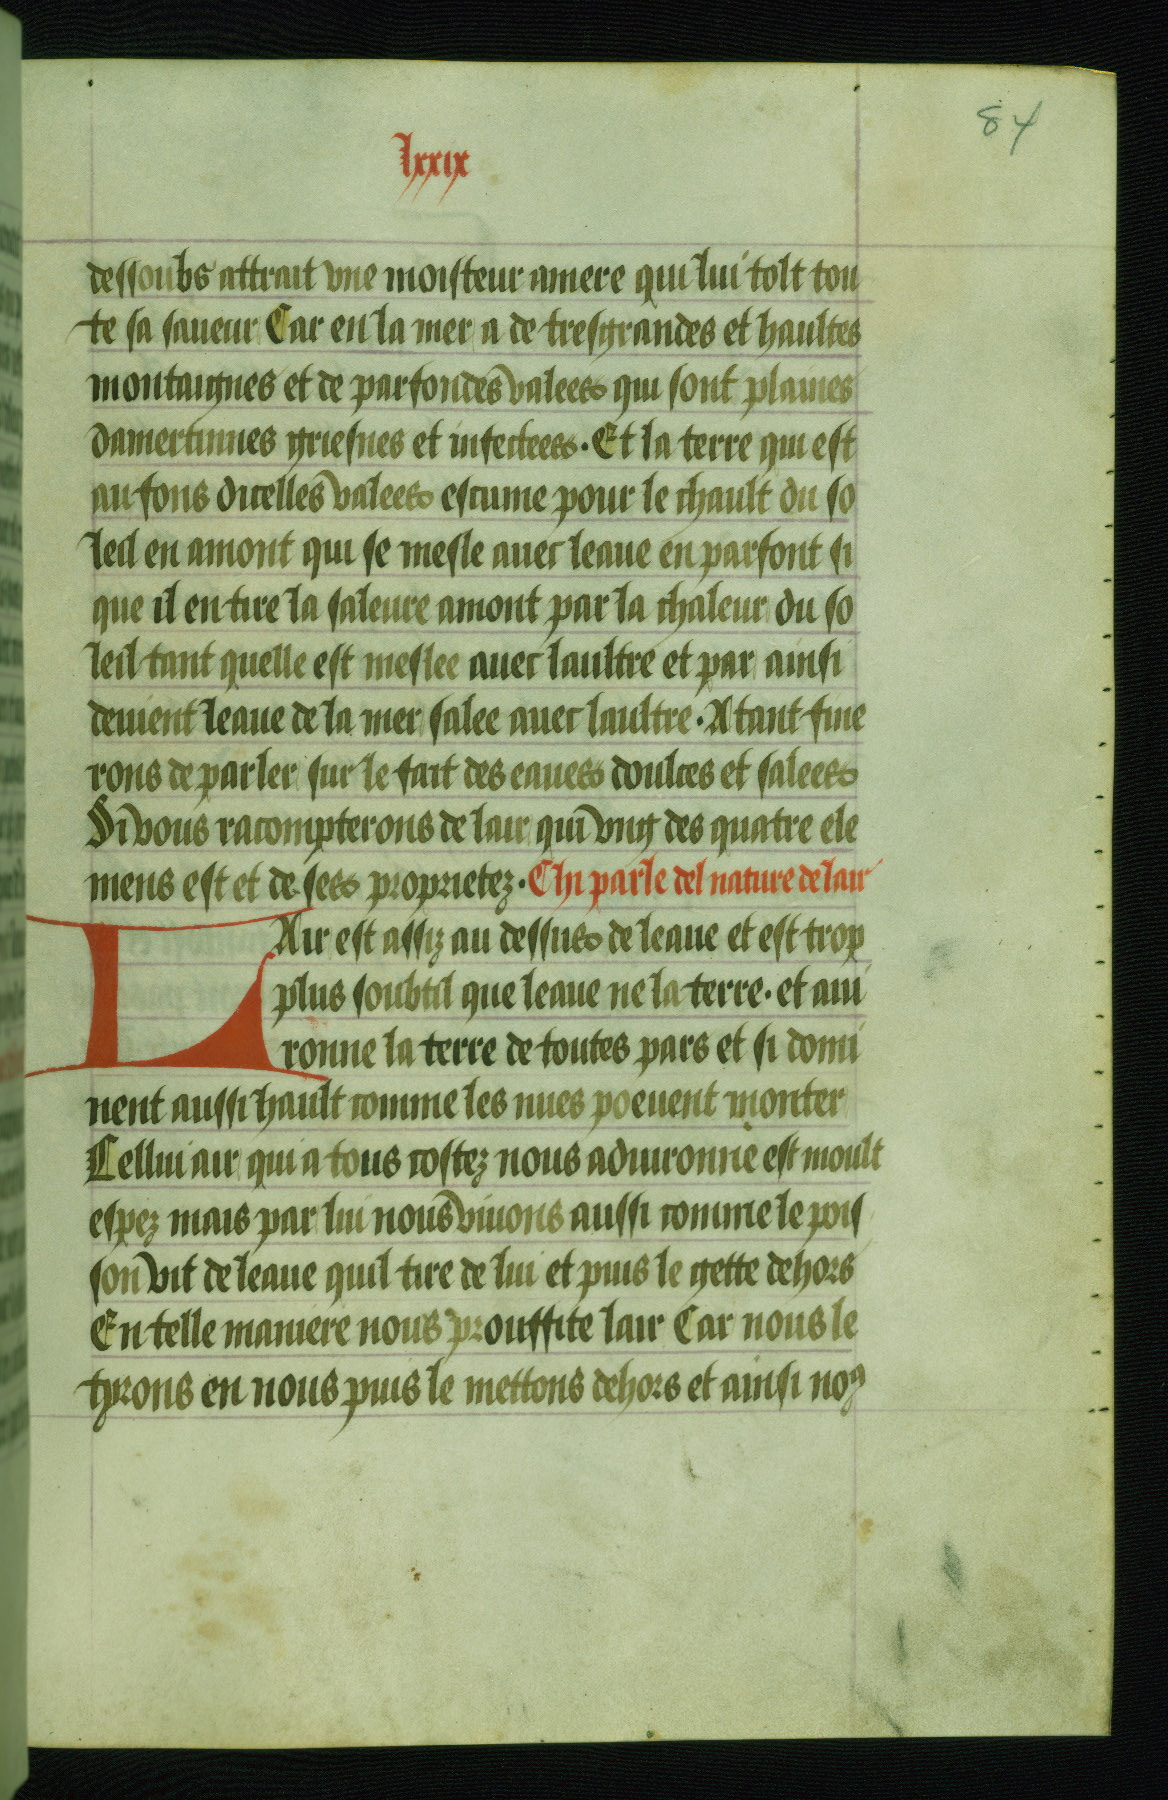 84
lxxix
dessoubs attrait vne moisteur amere qui lui tolt tou
te sa saueur Car en la mer a de tresgrandes et haultes
montaignes et de parfondes valees qui sont plaines
damertumes griefues et infectees. Et la terre qui est
au fons dicelles valees escume pour le chault du so
leil en amont qui se mesle auec leaue en parfont si
que il en tire la saleure amont par la chaleur du so
leil tant quelle est meslee auec laultre et par ainsi
deuient leaue de la mer salee auec laultre. Atant fine
rons de parler sur le fait des eaues doulces et salees
Si vous racompterons de lair qui vng des quatre ele
mens est et de ses proprietez. Chi parle del nature de lair
LAir est assiz au dessus de leaue et est trop
plus soubtil que leaue ne la terre. et aui
ronne la terre de toutes pars et si domi
nent aussi hault comme les nues poeuent monter
Cellui air qui a tous costez nous aduironne est moult
espez mais par lui nous viuons aussi comme le pois
son vit de leaue quil tire de lui et puis le gette dehors
En telle maniere nous prouffite lair Car nous le
tyrons en nous puis le mettons dehors et ainsi noꝰ